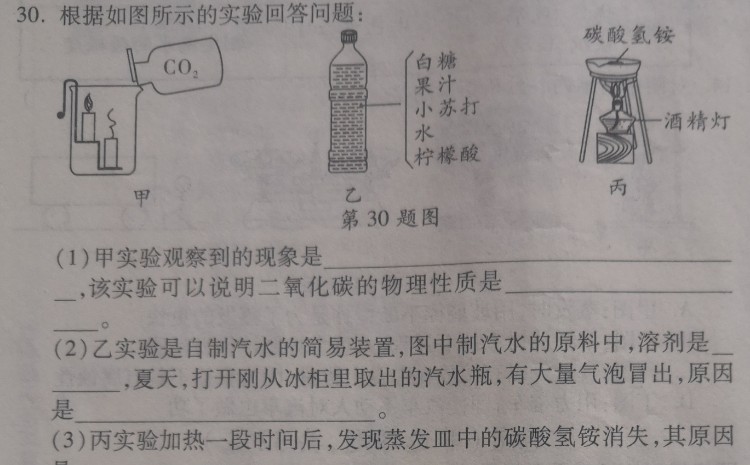 30. 根据如图所示的实验回答问题:
CO₂
白糖
果汁
小苏打
水
柠檬酸
碳酸氢铵
酒精灯
甲
乙
丙
第30题图
(1)甲实验观察到的现象是
,该实验可以说明二氧化碳的物理性质是
。
(2)乙实验是自制汽水的简易装置,图中制汽水的原料中,溶剂是
,夏天,打开刚从冰柜里取出的汽水瓶,有大量气泡冒出,原因
是。
(3)丙实验加热一段时间后,发现蒸发皿中的碳酸氢铵消失,其原因